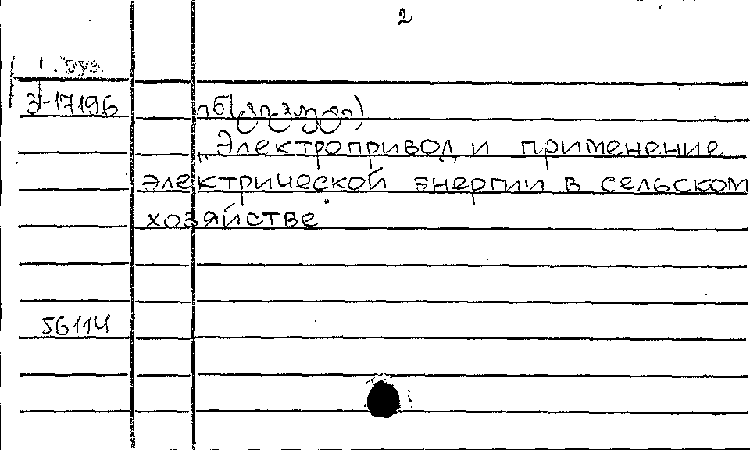 2
Э-17196
„Электропривод и применение
электрической энергии в сельском
хозяйстве"
56114